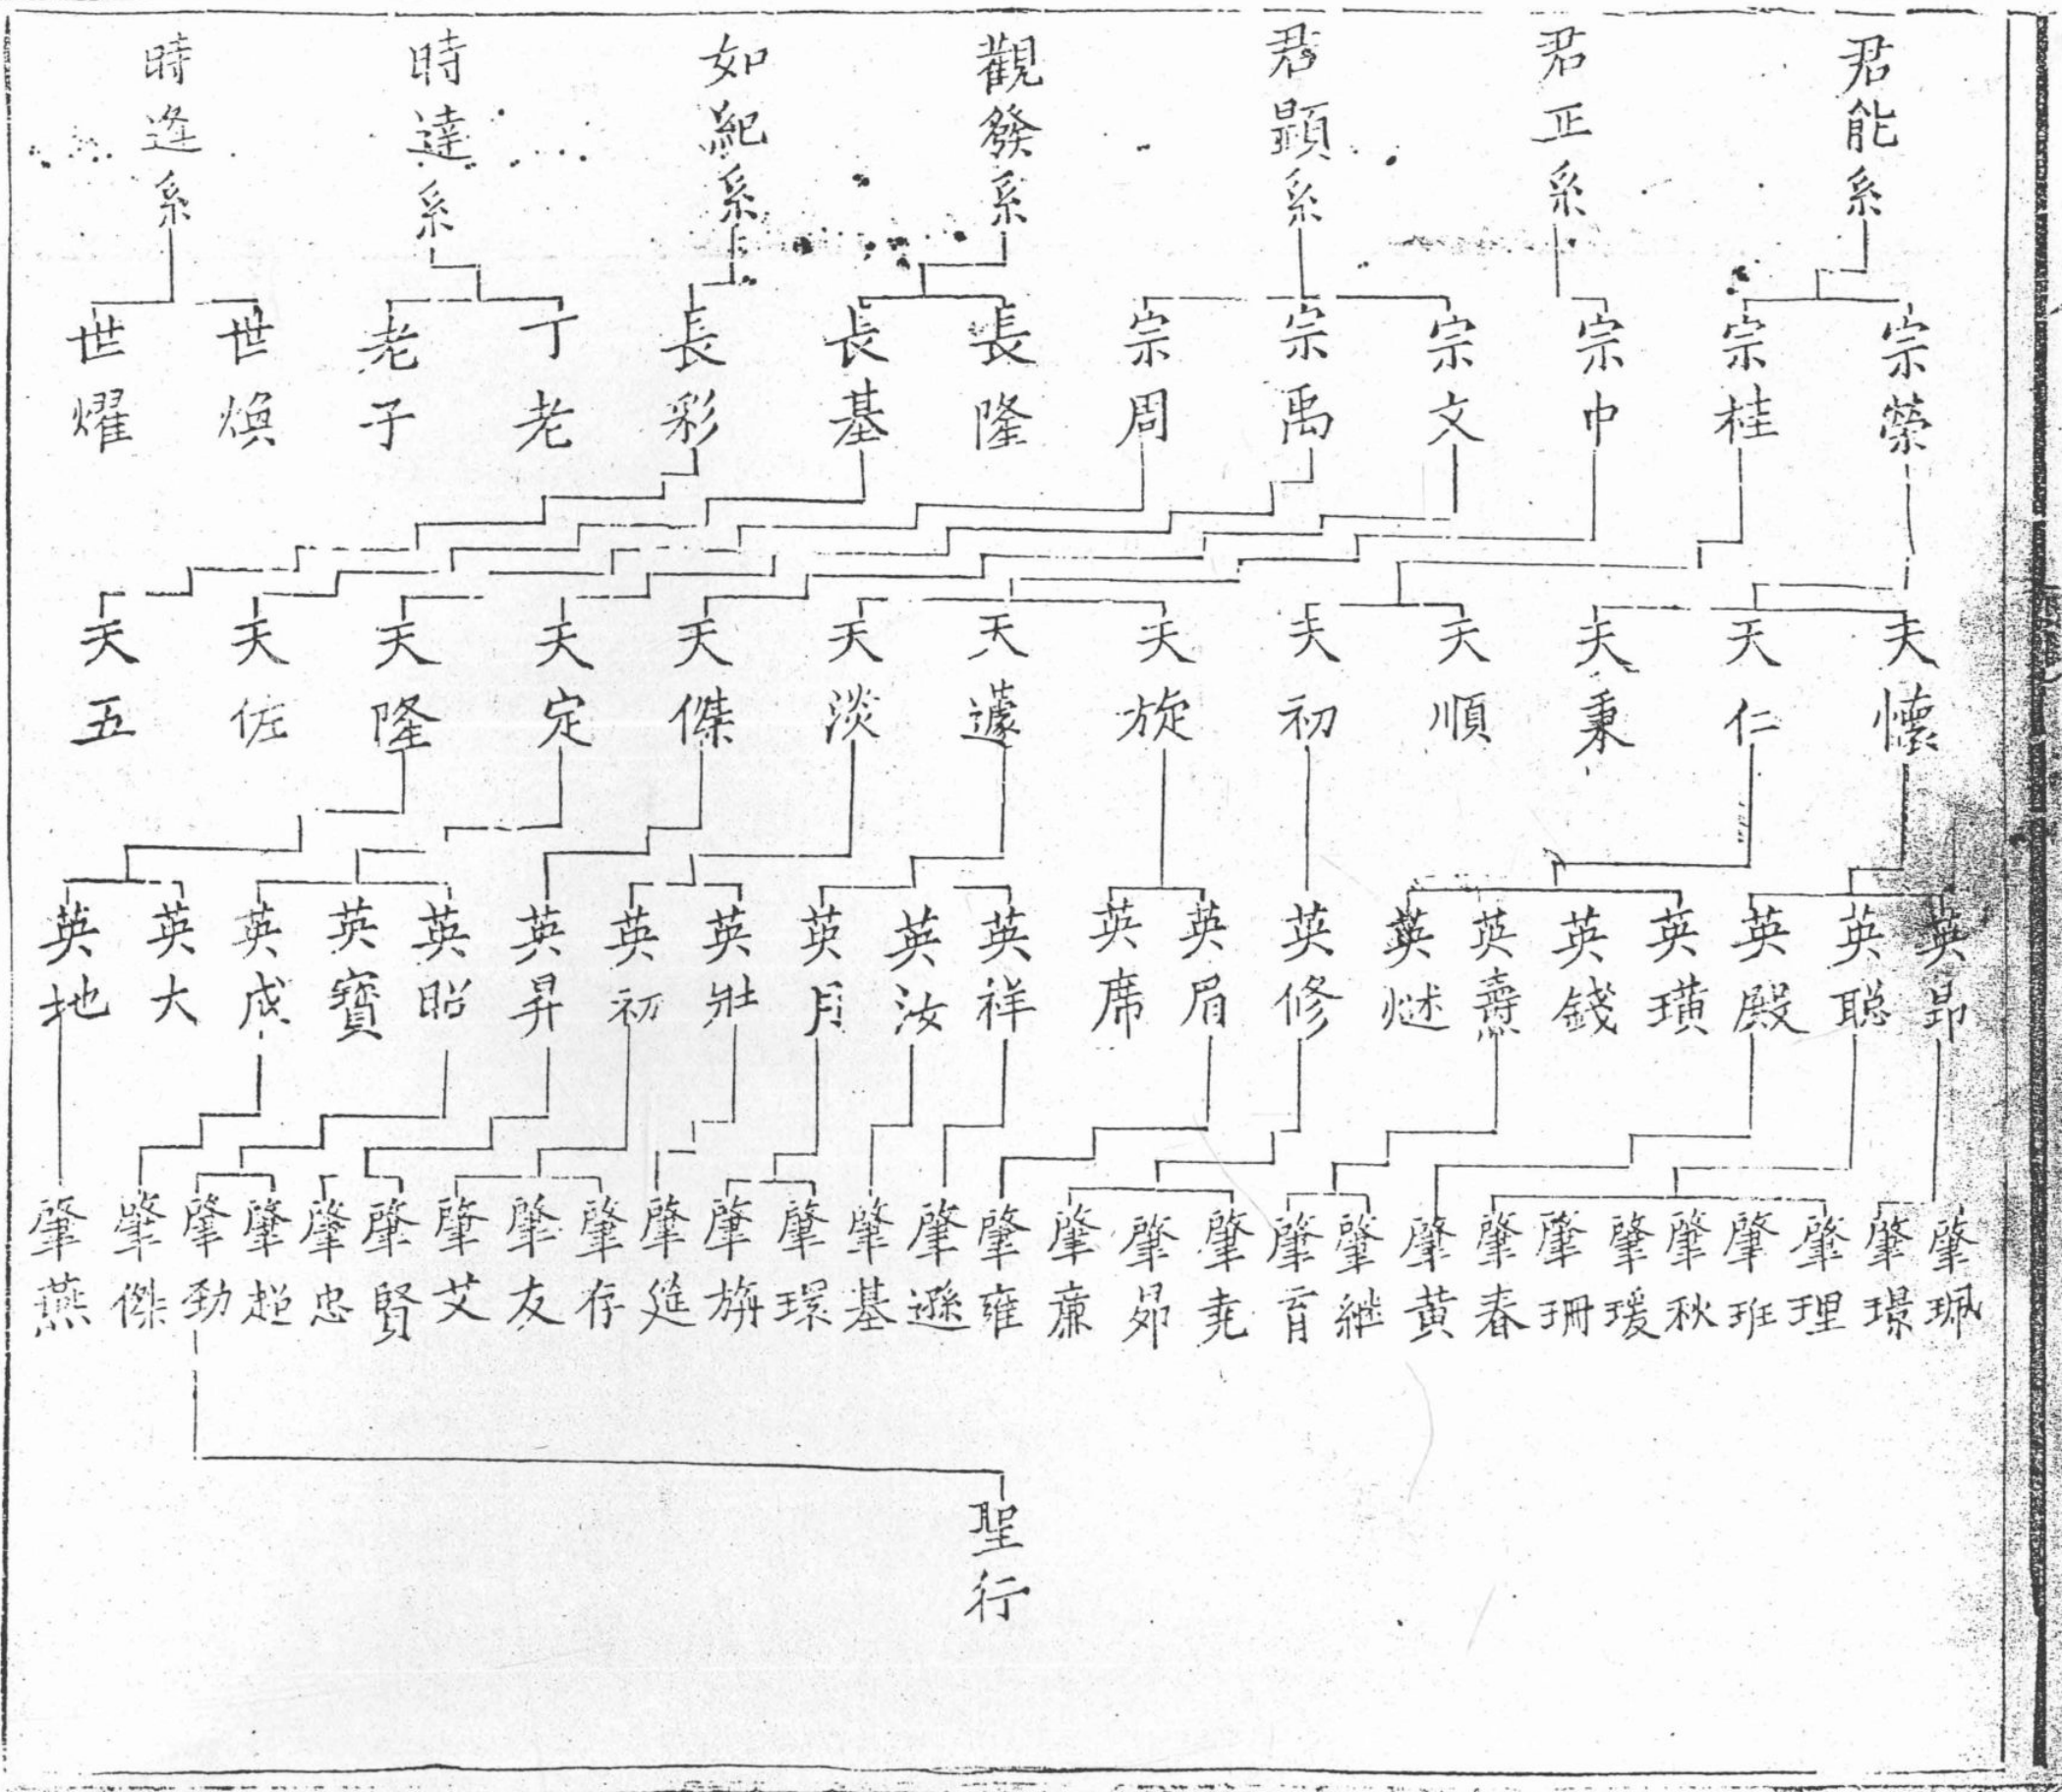 君能系
君正系
君顯系
觀發系
如紀系
時達系
時逢系
宗榮
宗桂
宗中
宗文
宗禹
宗周
長隆
長基
長彩
丁老
老子
世煥
世燿
天懷
天仁
天秉
天順
天初
天旋
天遽
天淡
天傑
天定
天隆
天佐
天五
英昴
英聪
英殿
英璜
英錢
英燾
英
英修
英眉
英席
英祥
英汝
英月
英壯
英初
英昇
英昭
英寶
英成
英大
英地
肇珮
肇璟
肇理
肇班
肇秋
肇瑗
肇珊
肇春
肇黄
肇継
肇育
肇尭
肇昴
肇廉
肇雍
肇遜
肇基
肇環
肇旃
肇筵
肇存
肇友
肇艾
肇賢
肇忠
肇超
肇勁
肇傑
肇燕
聖行